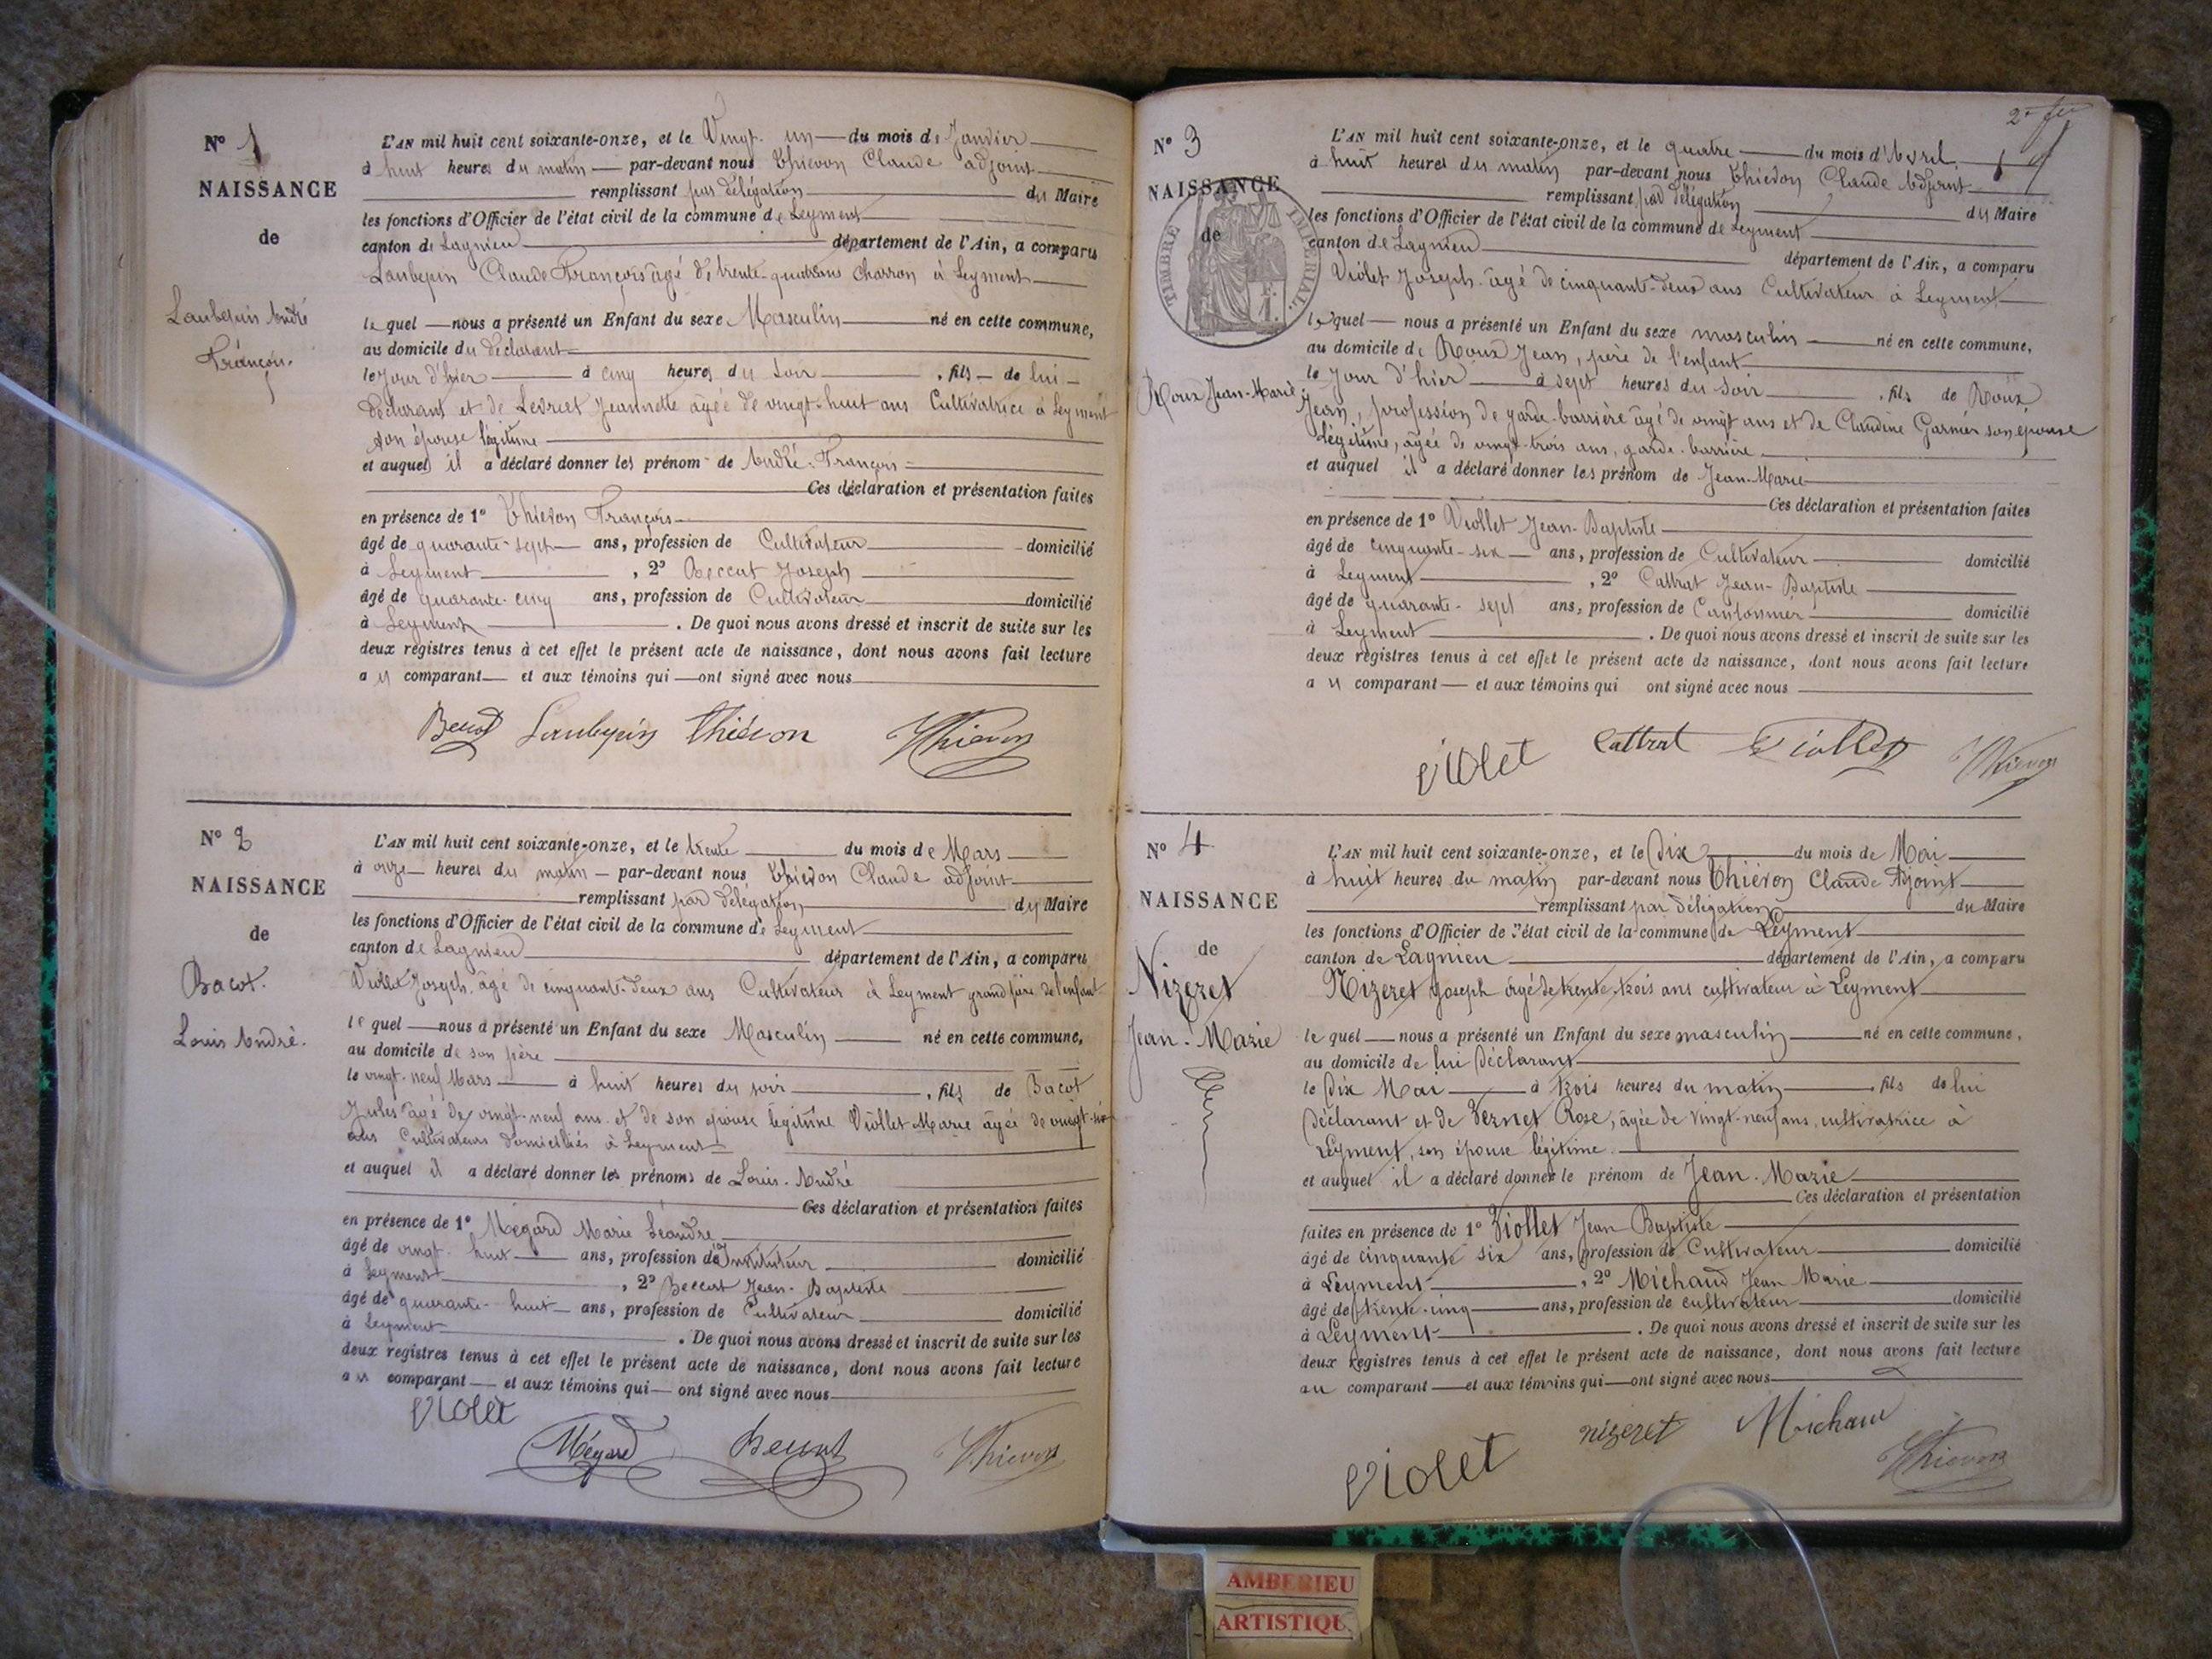 N° 1
NAISSANCE
de
Laubepin André
François.
L'AN mil huit cent soixante-onze, et le Vingt-un du mois de Janvier
à huit heures du matin par-devant nous Thievon Claude adjoint
remplissant par délégation du Maire
les fonctions d'Officier de l'état civil de la commune de Leyment
canton de Lagnieu département de l'Ain, a comparu
Laubepin Claude François âgé de trente-quatre ans charron à Leyment
lequel nous a présenté un Enfant du sexe Masculin né en cette commune,
au domicile du déclarant
le jour d'hier à cinq heures du soir, fils de lui
déclarant et de Levrat Jeannette âgée de vingt-huit ans Cultivatrice à Leyment
son épouse légitime
et auquel il a déclaré donner les prénom de André-François
Ces déclaration et présentation faites
en présence de 1° Thievon François
âgé de quarante-sept ans, profession de Cultivateur domicilié
à Leyment, 2° Beccat Joseph
âgé de quarante-cinq ans, profession de Cultivateur domicilié
à Leyment. De quoi nous avons dressé et inscrit de suite sur les
deux registres tenus à cet effet le présent acte de naissance, dont nous avons fait lecture
au comparant et aux témoins qui ont signé avec nous
Beccat Laubepin Thiévon Thievon
N° 2
NAISSANCE
de
Bacot.
Louis André.
L'AN mil huit cent soixante-onze, et le trente du mois de Mars
à onze heures du matin par-devant nous Thievon Claude adjoint
remplissant par délégation du Maire
les fonctions d'Officier de l'état civil de la commune de Leyment
canton de Lagnieu département de l'Ain, a comparu
Viollet Joseph, âgé de cinquante-deux ans Cultivateur à Leyment grand père de l'enfant
lequel nous a présenté un Enfant du sexe Masculin né en cette commune,
au domicile de son père
le vingt-neuf Mars à huit heures du soir, fils de Bacot
Jules âgé de vingt-neuf ans et de son épouse légitime Viollet Marie âgée de vingt-six
ans Cultivateurs domiciliés à Leyment
et auquel il a déclaré donner les prénoms de Louis-André
Ces déclaration et présentation faites
en présence de 1° Mégard Marie Léandre
âgé de vingt-huit ans, profession de Instituteur domicilié
à Leyment, 2° Beccat Jean-Baptiste
âgé de quarante-huit ans, profession de Cultivateur domicilié
à Leyment. De quoi nous avons dressé et inscrit de suite sur les
deux registres tenus à cet effet le présent acte de naissance, dont nous avons fait lecture
au comparant et aux témoins qui ont signé avec nous
Violet
Mégard Beccat Thievon
N° 3
NAISSANCE
de
TIMBRE IMPERIAL.
Roux Jean-Marie
L'AN mil huit cent soixante-onze, et le quatre du mois d'Avril
à huit heures du matin par-devant nous Thievon Claude Adjoint
remplissant par délégation du Maire
les fonctions d'Officier de l'état civil de la commune de Leyment
canton de Lagnieu département de l'Ain, a comparu
Violet Joseph âgé de cinquante-deux ans Cultivateur à Leyment
lequel nous a présenté un Enfant du sexe masculin né en cette commune,
au domicile de Roux Jean, père de l'enfant
le jour d'hier à sept heures du soir, fils de Roux
Jean, profession de garde-barrière âgé de vingt ans et de Claudine Garnier son épouse
légitime, âgée de vingt-trois ans, garde-barrière
et auquel il a déclaré donner les prénom de Jean-Marie
Ces déclaration et présentation faites
en présence de 1° Viollet Jean-Baptiste
âgé de cinquante-six ans, profession de Cultivateur domicilié
à Leyment, 2° Cattrat Jean-Baptiste
âgé de quarante-sept ans, profession de Cantonnier domicilié
à Leyment. De quoi nous avons dressé et inscrit de suite sur les
deux registres tenus à cet effet le présent acte de naissance, dont nous avons fait lecture
au comparant et aux témoins qui ont signé avec nous
Violet Cattrat Viollet Thievon
N° 4
NAISSANCE
de
Nizeret
Jean-Marie
L'AN mil huit cent soixante-onze, et le Dix du mois de Mai
à huit heures du matin par-devant nous Thiévon Claude Adjoint
remplissant par délégation du Maire
les fonctions d'Officier de l'état civil de la commune de Leyment
canton de Lagnieu département de l'Ain, a comparu
Nizeret Joseph âgé de trente-trois ans cultivateur à Leyment
lequel nous a présenté un Enfant du sexe masculin né en cette commune,
au domicile de lui Déclarant
le Dix Mai à trois heures du matin, fils de lui
Déclarant et de Vernet Rose, âgée de vingt-neuf ans, cultivatrice à
Leyment, son épouse légitime.
et auquel il a déclaré donner le prénom de Jean-Marie
Ces déclaration et présentation
faites en présence de 1° Viollet Jean Baptiste
âgé de cinquante six ans, profession de Cultivateur domicilié
à Leyment, 2° Michaud Jean Marie
âgé de trente-cinq ans, profession de cultivateur domicilié
à Leyment. De quoi nous avons dressé et inscrit de suite sur les
deux registres tenus à cet effet le présent acte de naissance, dont nous avons fait lecture
au comparant et aux témoins qui ont signé avec nous
Violet nizeret Michaud Thievon
AMBERIEU
ARTISTIQUE